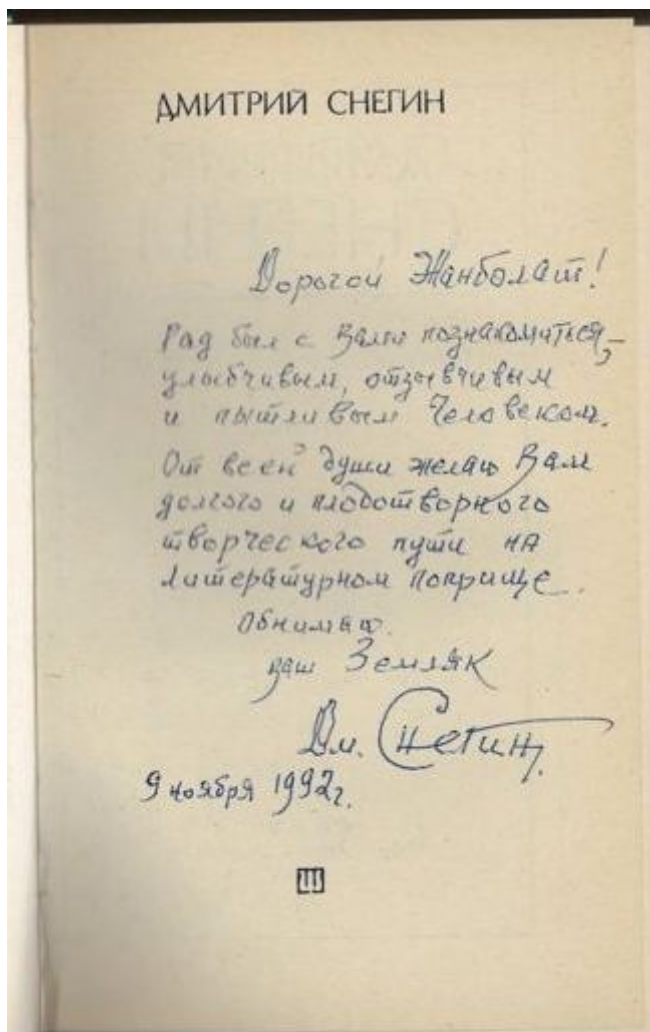 ДМИТРИЙ СНЕГИН
Дорогой Жанболат!
Рад был с Вами познакомиться, –
улыбчивым, отзывчивым
и пытливым Человеком.
От всей души желаю Вам
долгого и плодотворного
творческого пути на
литературном поприще.
Обнимаю.
Ваш Земляк
Дм. Снегин.
9 ноября 1992г.